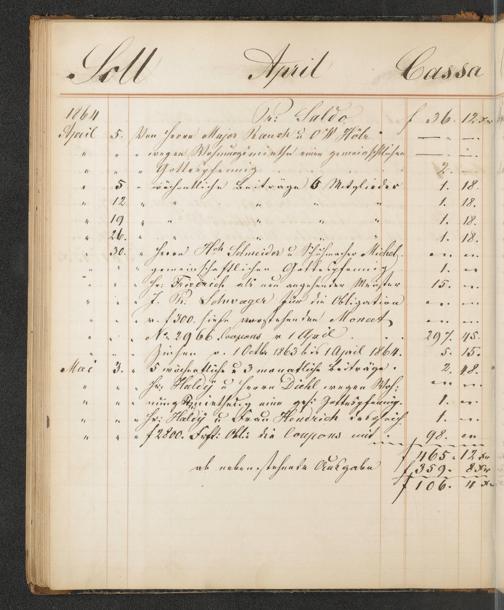 Soll April Cassa
1864 Pr: Saldo f 36. 12 Xr
April 5. Von Herrn Major Rauch u O'W Hölz
" " " wegen Wohnungsmiethe einen gemeinschftlichen
" " " Gottespfennig 2.
" 5 " wöchentliche Beiträge 6 Mitglieder 1. 18.
" 12 " " " " 1. 18.
" 19 " " " " 1. 18.
" 26. " " " " 1. 18.
" 30. " Herrn Schneider u Schuhmacher Michel
" " " gemeinschaftlichen Gottespfennig 1. "
" " " Hr: Friedrich als neu angehender Meister 15. "
" " " J. Schwager für die Obligation
" " " v. f 300. hiesse vorstehenden Monat
" " " No. 2966 Coupons v 1 April 297. 45.
" " " Zinsen v. 1 Octbr 1863 bis 1 April 1864. 5. 15.
Mai 3. " 5 wöchentliche u 3 monatliche Beiträge 2. 48.
" " " Hr: Haldy u Herrn Diehl wegen Woh:
" " " nungsmiethung eine gfl: Gottespfennig. 1. "
" " " Hr: Haldy u Frau Hendrich desgleich. 1. "
" " " f 2800. Frft: Obli: die Coupons mit 98. "
f 465. 12 Xr
ab nebenstehende Ausgabe f 359. 8 Xr
f 106. 4 Xr